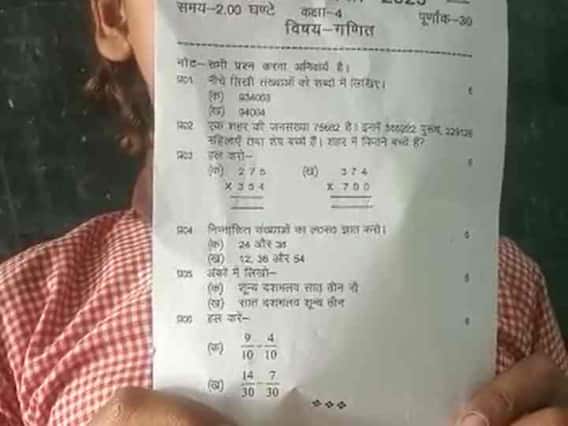 समय–2.00 घण्टे कक्षा–4 पूर्णांक–30
विषय–गणित
नोट– सभी प्रश्न करना अनिवार्य है।
प्र01 नीचे लिखी संख्याओं को शब्दों में लिखिए। 5
(क) 934003
(ख) 94004
प्र02 एक शहर की जनसंख्या 75662 है। इनमें पुरूष, 229128
महिलाएँ तथा शेष बच्चे हैं। शहर में कितने बच्चे हैं?
प्र03 हल करो– 5
(क) 2 7 5 (ख) 3 7 4
X 3 5 4 X 7 0 0
प्र04 निम्नांकित संख्याओं का ल0स0 ज्ञात करो। 5
(क) 24 और 36
(ख) 12, 36 और 54
प्र05 अंकों में लिखो– 5
(क) शून्य दशमलव सात तीन नौ
(ख) सात दशमलव शून्य तीन
प्र06 हल करें–
(क) 9/10 - 4/10
(ख) 14/30 - 7/30